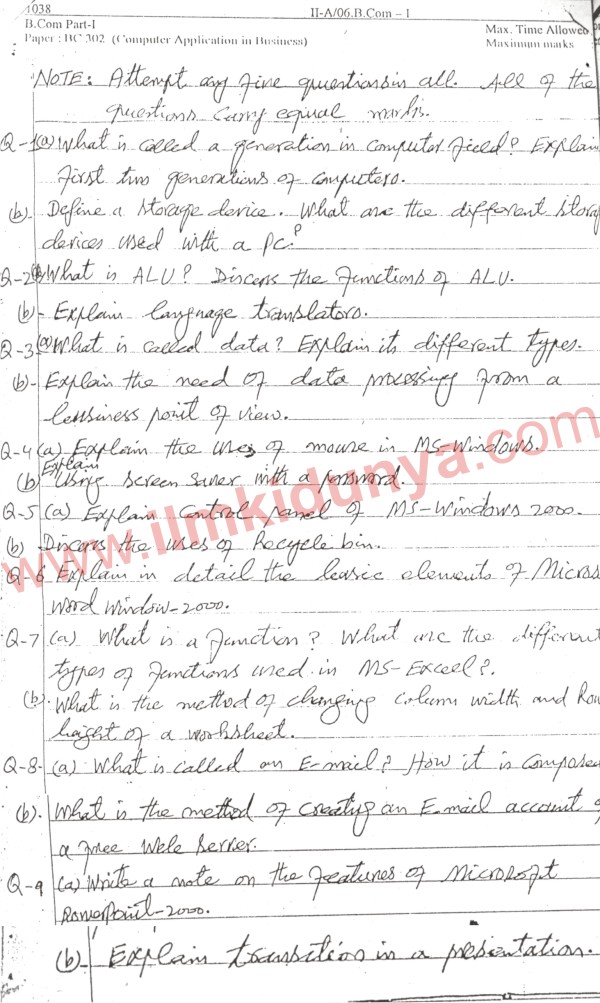 1038
II-A/06.B.Com – I
B.Com Part-I
Max. Time Allowed
Paper : BC 302 (Computer Application in Business)
Maximum marks
NOTE: Attempt any five questions in all. All of the
questions carry equal marks.
Q-1(a) What is called a generation in computer field? Explain
first two generations of computers.
(b) Define a storage device. What are the different storag
devices used with a PC?
Q-2(a) What is ALU? Discuss the functions of ALU.
(b)- Explain language translators.
Q-3(a) What is called data? Explain its different types.
(b)- Explain the need of data processing from a
bussiness point of view.
Q-4 (a) Explain the uses of mouse in MS-Windows.
(b) Explain Using screen saver with a password.
Q-5 (a) Explain control panel of MS-Windows 2000.
(b) Discuss the uses of Recycle bin.
Q-6 Explain in detail the basic elements of Micros
word window-2000.
Q-7 (a) What is a function? What are the different
types of functions used in MS-Excel?.
(b). What is the method of changing column width and Row
height of a worksheet.
Q-8- (a) What is called an E-mail? How it is composed
(b). What is the method of creating an E-mail account
a free Web Server.
Q-9 (a) Write a note on the features of Microsoft
PowerPoint-2000.
(b)- Explain transition in a presentation.
www.ilmkidunya.com